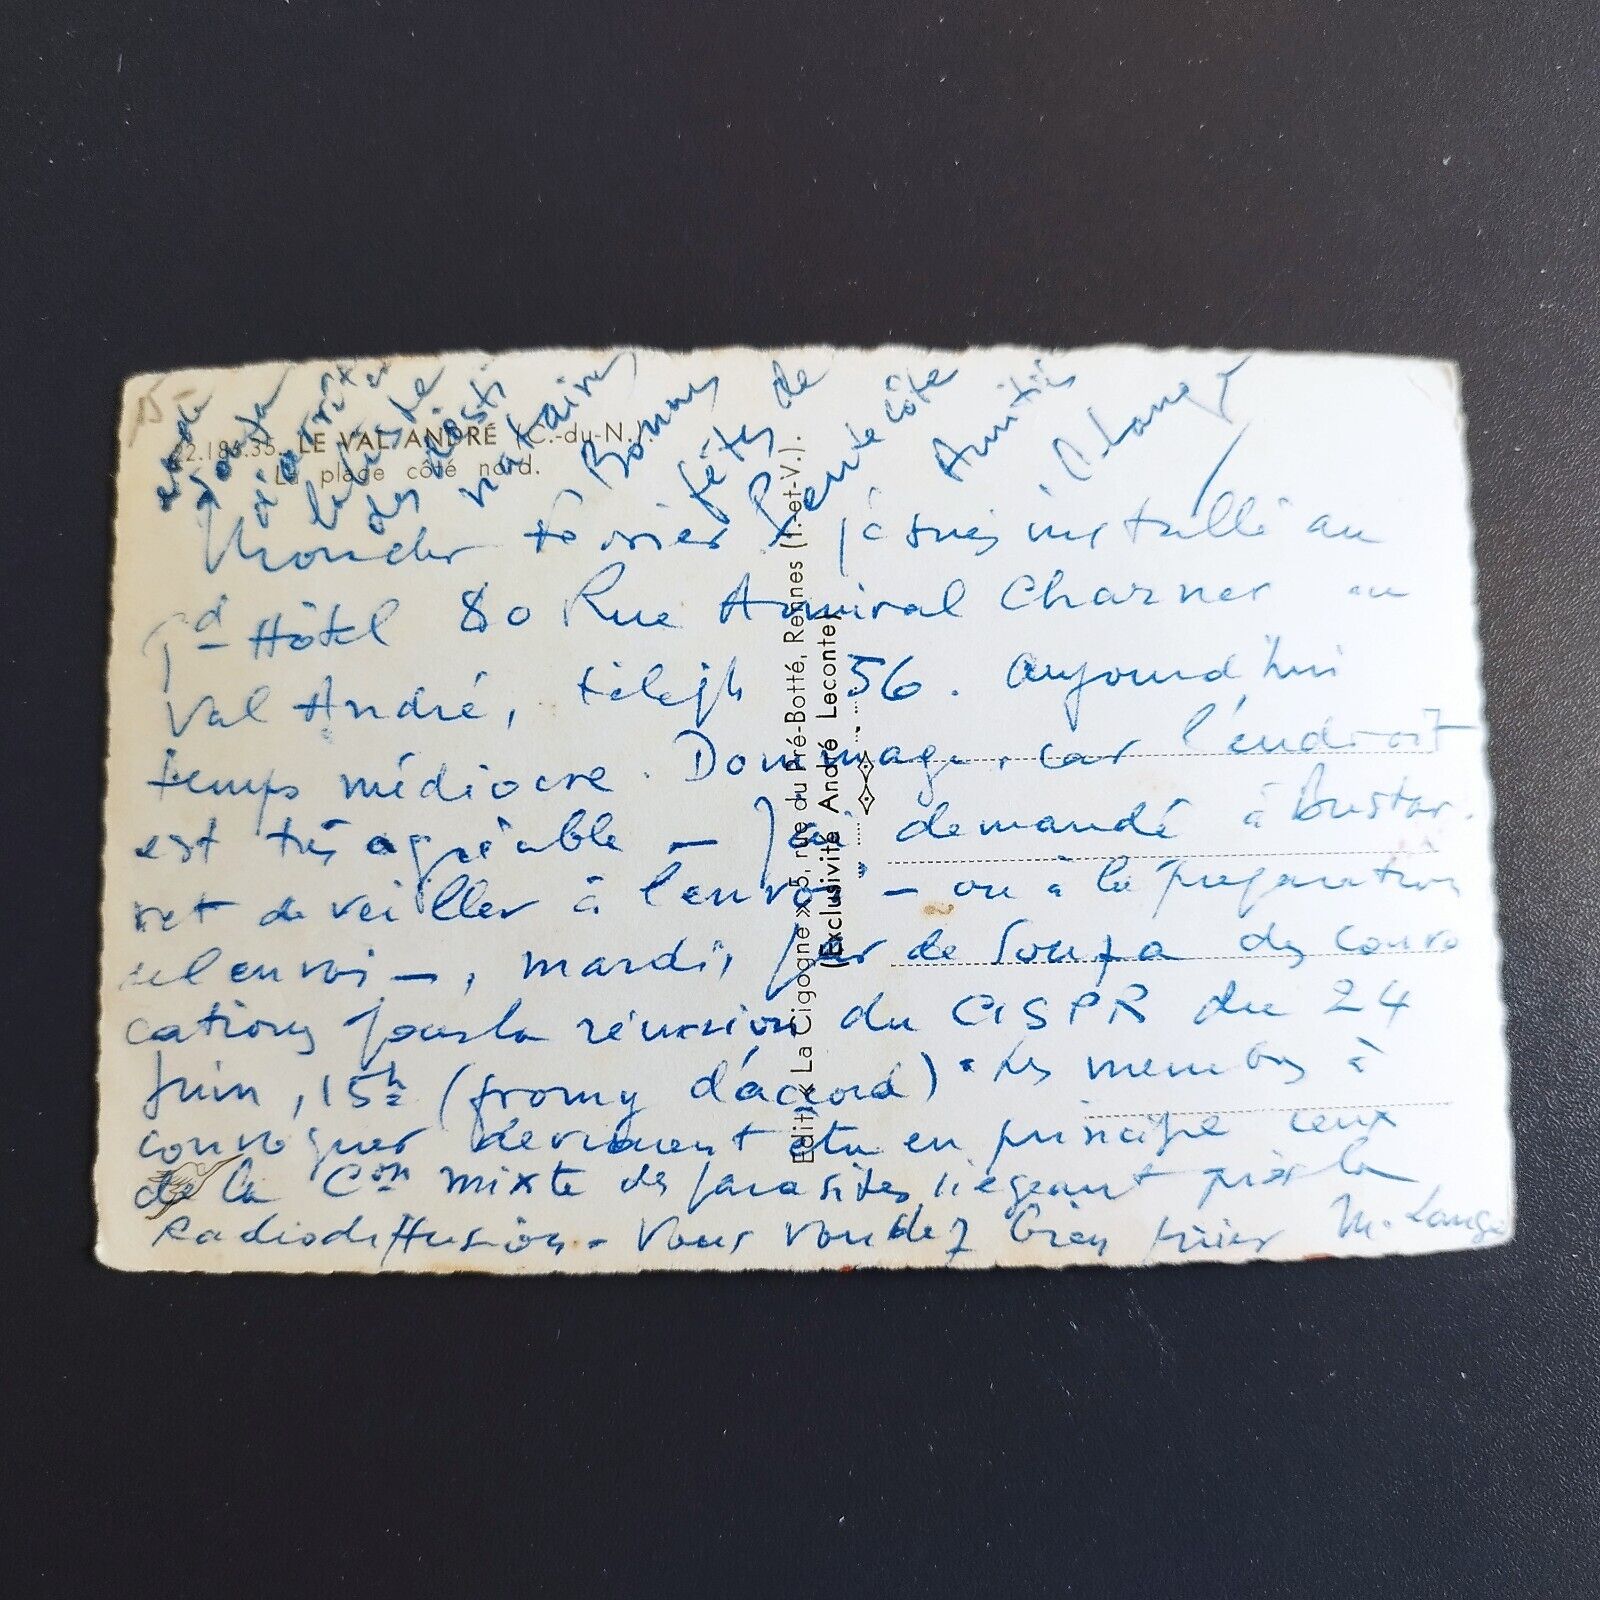 15-
22.186.35. LE VAL ANDRÉ (C.-du-N.).
La plage côté nord.
je suis installé au
Gd Hôtel 80 Rue Amiral Charner au
Val André, téléph 56. Aujourd'hui
temps médiocre. Dommage, car l'endroit
est très agréable - J'ai demandé à
de veiller à l'envoi - ou à la préparation
de l'envoi -, mardi, par de Souza des convo
cations pour la réunion du CISPR du 24
Juin, 15h (fromy d'accord). Les membres à
convoquer devraient être en principe ceux
de la Con mixte des parasites siégeant près la
Radiodiffusion - Vous voudrez bien prier M. Lange
de Souza
la liste
des desti
nataires
Bonnes
fêtes de
Pentecôte
Amitiés
Édit. « La Cigogne » 5, rue du Pré-Botté, Rennes (I.-et-V.).
(Exclusivité André Leconte)